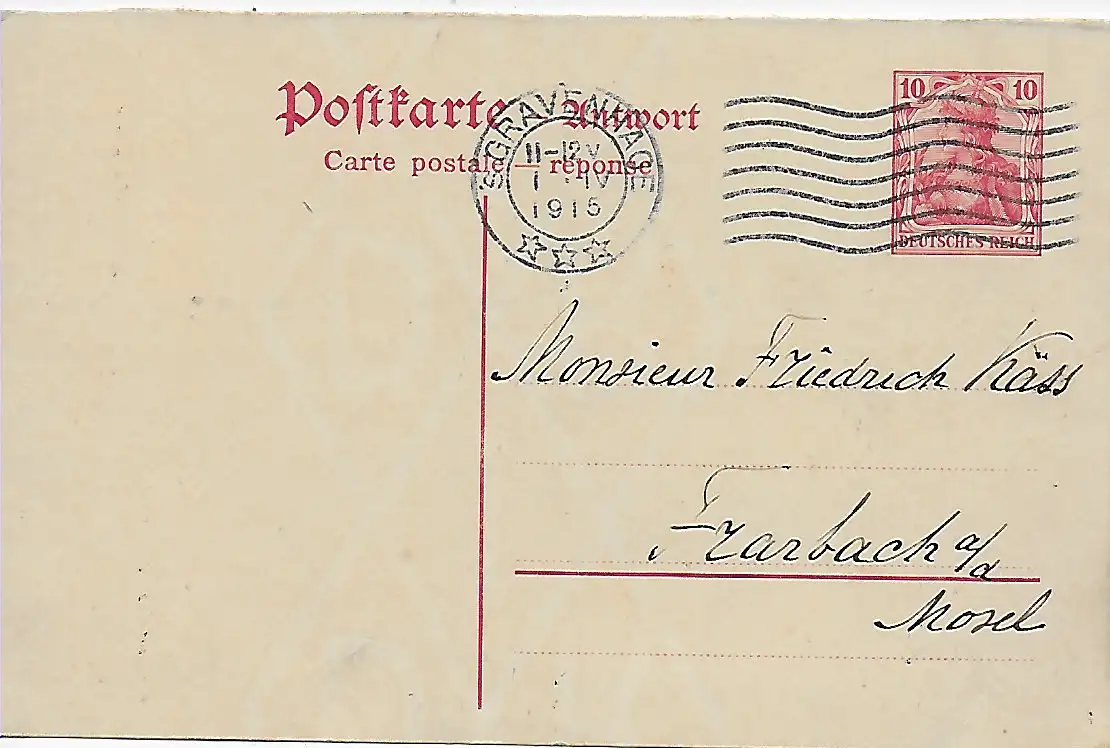 Postkarte – Antwort
Carte postale – réponse
10 10
DEUTSCHES REICH
'SGRAVENHAGE
11-12V
1 · IV
1915
Monsieur Friedrich Käss
Trarbach a/d
Mosel